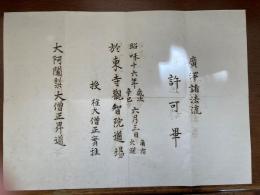 廣澤諸法流
許可畢
昭和十六年歳次辛巳六月三日角宿火曜
於東寺觀智院道場
授 大僧正實
大阿闍梨大僧正昇道